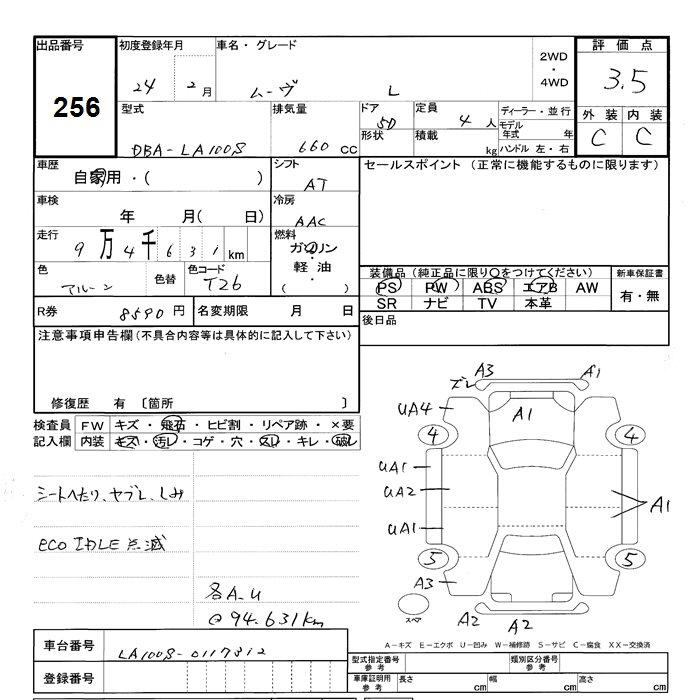 出品番号
初度登録年月
車名・グレード
評価点
256
24 2月
ムーヴ L
2WD
・
4WD
3.5
型式
排気量
ドア
定員
ディーラー・並行
外装 内装
DBA-LA100S
660 CC
5D
4人
モデル
年式 年
C C
形状
積載
kg
ハンドル 左・右
車歴
自家用・( )
シフト
AT
セールスポイント (正常に機能するものに限ります)
車検
年 月( 日)
冷房
AAC
走行
9万4千631km
燃料
ガソリン
・
軽油
( )
色
色替
色コード
T26
装備品(純正品に限り○をつけてください)
新車保証書
PS PW ABS エアB AW
SR ナビ TV 本革
有・無
R券
8590円
名変期限 月 日
後日品
注意事項申告欄(不具合内容等は具体的に記入して下さい)
修復歴 有 〔箇所 〕
検査員
記入欄
FW キズ・飛石・ヒビ割・リペア跡・×要
内装 キズ・汚レ・コゲ・穴・スレ・キレ・破レ
シートヘたり、ヤブレ、しみ
eco IDLE 点滅
各A-U
@94.631km
A3 A1
ズレ
UA4
A1
4 4
UA1
UA2
A1
UA1
5 5
A3
スペア
A2 A2
A-キズ E-エクボ U-凹み W-補修跡 S-サビ C-腐食 XX-交換済
車台番号
LA100S-0117312
登録番号
型式指定番号
参考
類別区分番号
参考
車庫証明用
参考
長さ cm
幅 cm
高さ cm